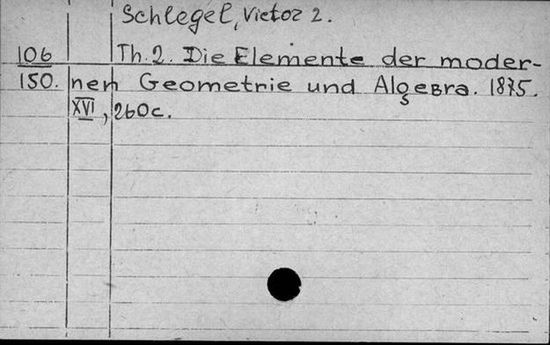 Schlegel, Victor 2.
106 Th. 2. Die Elemente der moder-
150. nen Geometrie und Algebra. 1875.
XVI, 260c.